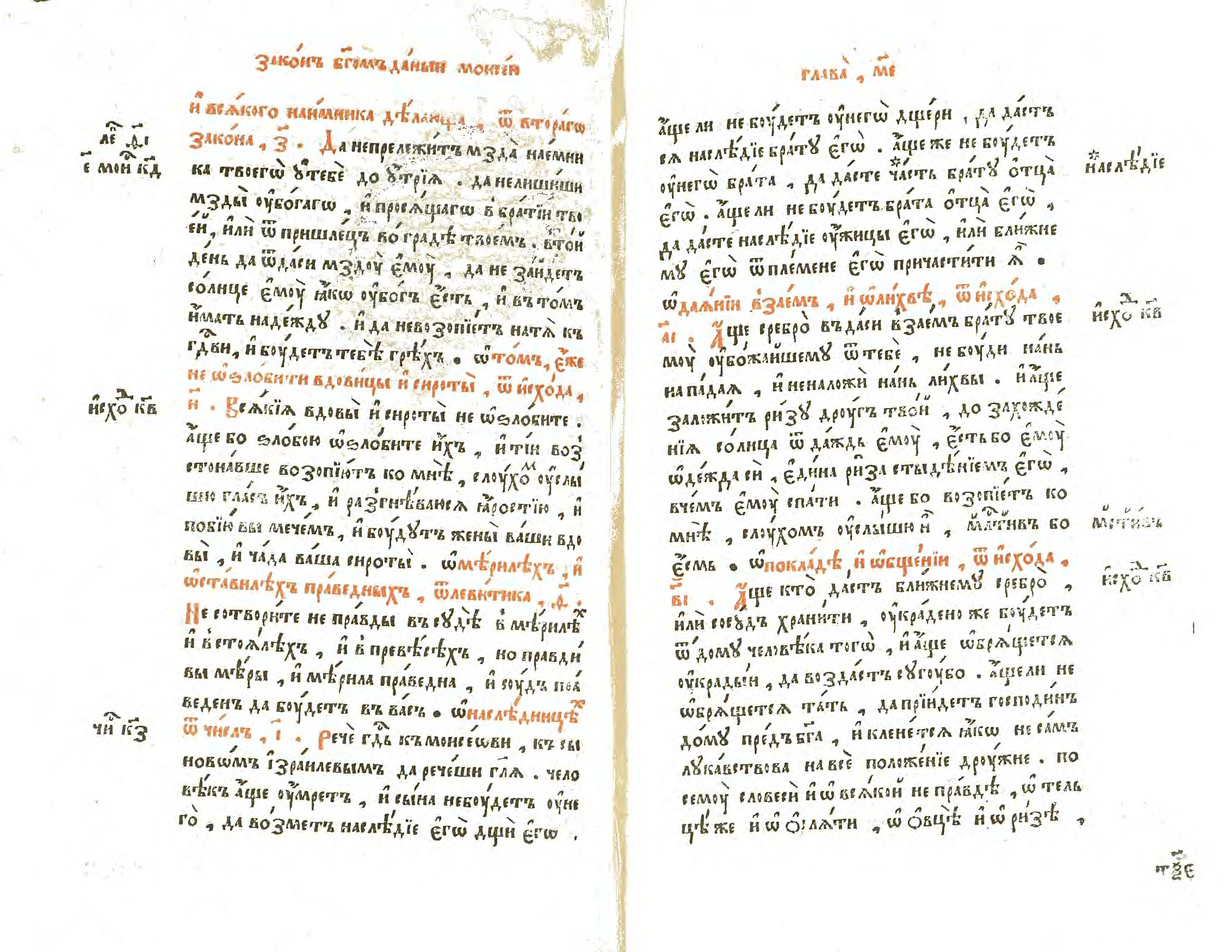 Зако́нъ бг҃омъ да́нный мѡѵсе́ѡмъ
и҆ всѧ́кого наи́мника дѣ́лающа , ѿ втора́гѡ
зако́на , з҃ . Да непрележи́тъ мзда̀ нае́мни
ка твоегѡ̀ ᲂу҆тебѐ до ᲂу҆́трїѧ . да нелиши́ши
мзды̀ ᲂу҆бо́гагѡ , и҆ просѧ́щагѡ в бра́тїи тво
е́й , и҆лѝ ѿ пришле́цъ во гра́дѣ твое́мъ . вто́й
де́нь да ѿда́си мздᲂу̀ є҆мᲂу̀ , да не за́йдетъ
со́лнце є҆мᲂу̀ ꙗ҆́кѡ ᲂу҆бо́гъ є҆́сть , и҆ въ то́мъ
и҆́мать наде́ждꙋ . и҆ да невозопїе́тъ натѧ̀ къ
гдⷭ҇ви , и҆ бᲂу́детъ тебѣ̀ грѣ́хъ . ѡ҆ то́мъ , є҆́же
не ѡ҆ѕло́бити вдови́цы и҆ сироты̀ , ѿ и҆схо́да ,
и҃ . Всѧ́кїѧ вдовы̀ и҆ сироты̀ не ѡ҆ѕло́бите .
а҆́ще бо ѕло́бою ѡ҆ѕло́бите и҆̀хъ , и҆ ті́и воз̾
стона́вше возопїю́тъ ко мнѣ̀ , слᲂу́хоⷨ ᲂу҆слы́
шю гла́съ и҆̀хъ , и҆ разгнѣ́ваюсѧ ꙗ҆́ростїю , и҆
побїю̀ вы̀ мече́мъ , и҆ бᲂу́дꙋтъ жены̀ ва́ши вдо
вы̀ , и҆ ча́да ва́ша сироты̀ . ѡ҆ мѣ́рилѣхъ , и҆
ѡ҆ ста́вилѣхъ пра́ведныхъ , ѿ леви́тика , ѳ҃ .
Не сотвори́те не пра́вды въ сꙋдѣ̀ в̾ мѣ́рилѣⷯ
и҆ в̾ стоѧ́лѣхъ , и҆ в̾ превѣ́сѣхъ , но пра́вди
вы мѣ́ры , и҆ мѣ́рила пра́ведна , и҆ сᲂу́дъ пра́
веденъ да бᲂу́детъ въ ва́съ . ѡ҆ наслѣ́дницѣⷯ
ѿ чи́слъ , і҃ . Речѐ гдⷭ҇ь къ мѡисе́ѡви , къ сы
новѡ́мъ і҆зра́илевымъ да рече́ши гл҃ѧ . чело
вѣ́къ а҆́ще ᲂу҆́мретъ , и҆ сы́на небᲂу́детъ ᲂу҆не
го̀ , да во́зметъ наслѣ́дїе є҆гѡ̀ дщѝ є҆гѡ̀ .
л҃е ѳ҃і
є҃ мой к҃д
и҆схоⷣ к҃в
чи к҃з
глава̀ , м҃е
а҆́ще ли не бᲂу́детъ ᲂу҆негѡ̀ дще́ри , да да́стъ
сѧ наслѣ́дїе бра́тꙋ є҆гѡ̀ . а҆́ще же не бᲂу́детъ
ᲂу҆негѡ̀ бра́та , да дастѐ ча́сть бра́тꙋ ѻ҆тца̀
є҆гѡ̀ . а҆́ще ли не бᲂу́детъ бра́та ѻ҆тца̀ є҆гѡ̀ ,
да дастѐ наслѣ́дїе ᲂу҆́жицы є҆гѡ̀ , и҆лѝ бли́жне
мꙋ є҆гѡ̀ ѿ пле́мене є҆гѡ̀ причасти́ти ѧ҆̀ .
ѡ҆ даѧ́нїи в̾зае́мъ , и҆ ѡ҆ ли́хвѣ , ѿ и҆схо́да ,
а҃і . А҆́ще сребро̀ въда́си в̾зае́мъ бра́тꙋ твое
мᲂу̀ ᲂу҆божа́йшемꙋ ѿ тебѐ , не бᲂу́ди на́нь
напа́даѧ , и҆ неналожѝ на́нь ли́хвы . и҆ а҆́ще
заложи́тъ ри́зꙋ дрᲂу́гъ тво́й , до захожде́
нїѧ со́лнца ѿда́ждь є҆мᲂу̀ , є҆́сть бо є҆мᲂу̀
ѡ҆де́жда сѝ , є҆ди́на ри́за стыдѣ́нїемъ є҆гѡ̀ ,
вче́мъ є҆мᲂу̀ спа́ти . а҆́ще бо возопїе́тъ ко
мнѣ̀ , слᲂу́хомъ ᲂу҆слы́шю и҆̀ , млⷭ҇тивъ бо
є҆́смь . ѡ҆ покла́дѣ и҆ ѡ҆бще́нїи , ѿ и҆схо́да ,
в҃і . А҆́ще кто̀ да́стъ бли́жнемꙋ сребро̀ ,
и҆лѝ сосꙋ́дъ храни́ти , ᲂу҆кра́дено же бᲂу́детъ
ѿ до́мꙋ человѣ́ка тогѡ̀ , и҆ а҆́ще ѡ҆брѧ́щетсѧ
ᲂу҆кра́дый , да возда́стъ сꙋгᲂу́бо . а҆́щели не
ѡ҆брѧ́щетсѧ та́ть , да прїи́детъ господи́нъ
до́мꙋ предъ бг҃а , и҆ клене́тсѧ ꙗ҆́кѡ не са́мъ
лꙋка́вствова на всѐ положе́нїе дрᲂу́жне . по
семᲂу̀ словесѝ и҆ ѡ҆ всѧ́кой не пра́вдѣ , ѡ҆ тель
цѣ́ же и҆ ѡ҆ ѻ҆слѧ́ти , ѡ҆ ѻ҆вцѣ̀ и҆ ѡ҆ ри́зѣ ,
наслѣ́дїе
и҆схоⷣ к҃в
млⷭ҇тивъ
и҆схоⷣ к҃в